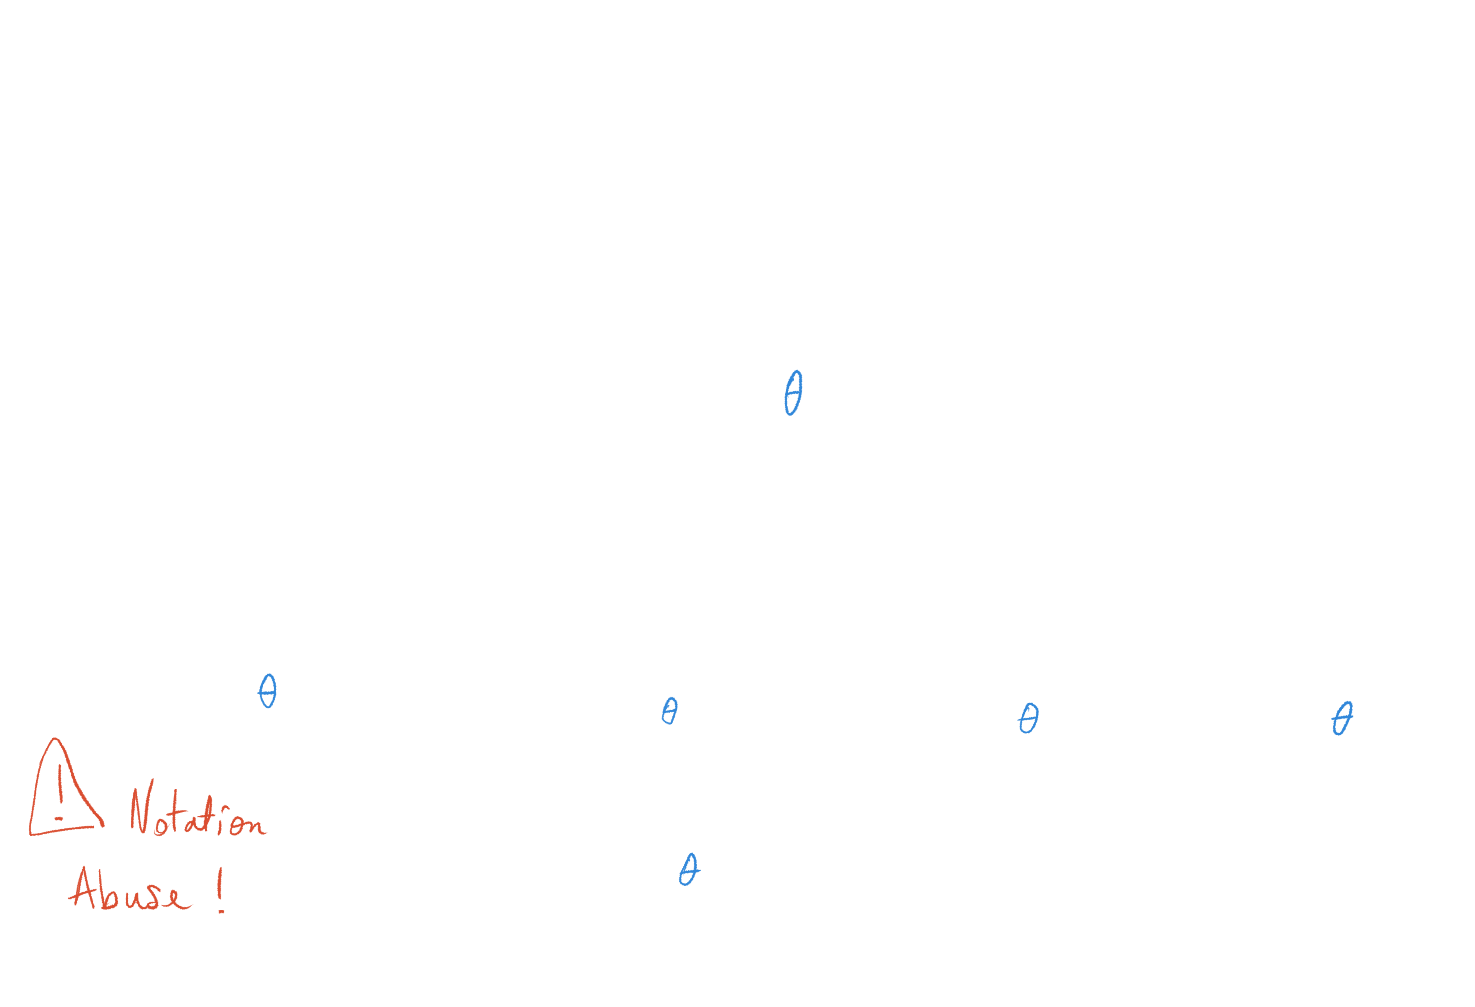 θ
θ θ θ θ
! Notation
Abuse !
θ